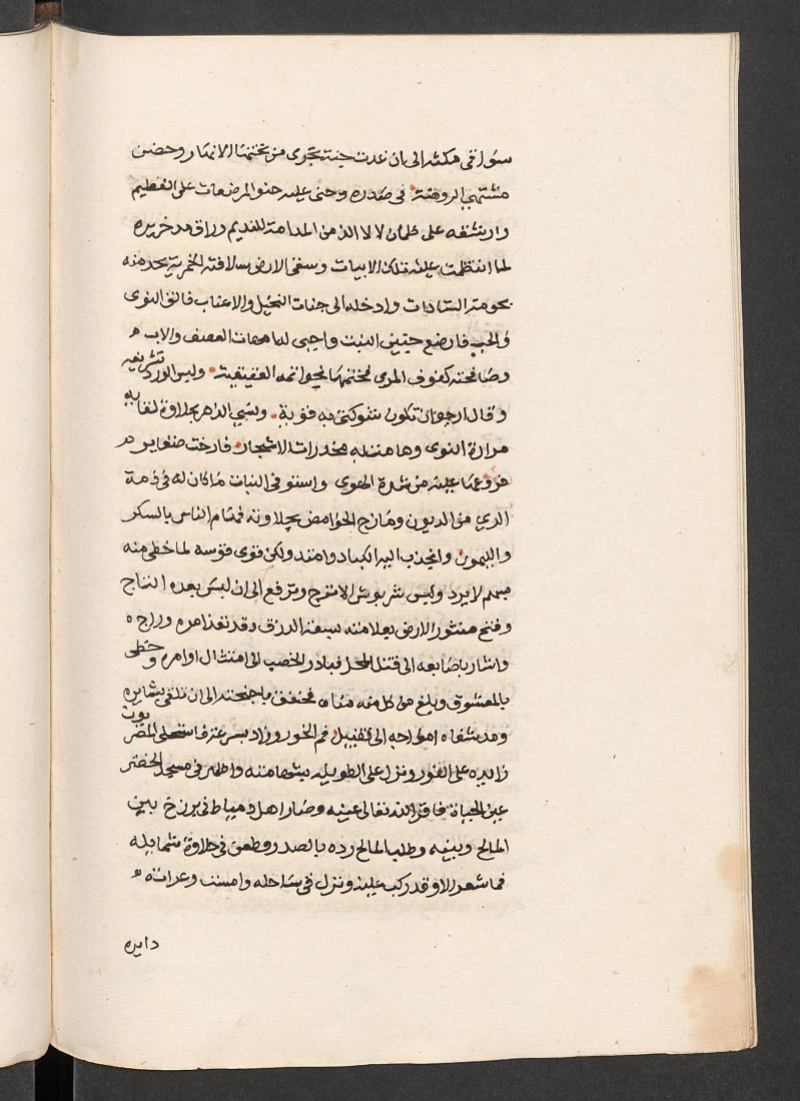 سواقى مكثه الى ان غدت جنة تجرى من تحتها الانهار وحضن
مشتهى الروضة فى صدره وحنى عليه حنو المرضعات على الفطيم
وارشفه على ظمان لالا الذ من المدامة للنديم وراق مد خريره
لما انتظمت عليه تلك الابيات وسقى الارض سلافته الخمرية يخدمته
بحومة السادات وادخله الى جنات النخيل والاعناب فالق النوى
والحب فارضع جنين النبت واحيى له امهات العصف والاب
وصافحته كفوف المرى فختمها بخواتمه العقيقية ولبس الورد تشريفه
وقال ارجو ان تكون شوكتى به قوية ونسى الزهر بحلاوة لقايه
مرارة النوى وهامت به مخدرات الاشجار فارخت ضفاير
فروعها عليه من شدة الهوى واستوفى النبات ما كان له فى ذمة
الرى من الديون ومازج الحوامض بحلاوته فهام الناس بالسكر
والليمون وانجذب اليه الكباد وامتد ولكن قوى قوسه لما حظى منه
بسهم لا يرد ولبس شربوش الاترج وترفع الى ان لبس بعده التاج
وفتح منثور الارض بعلامته بسعة الرزق وقد نفذ امره وراج
واشار باصابعه الى قتل المحل فبادر الخصب الى امتثال اوامره وحظى
بالمعشوق وبلغ من كل منه مناه فخفق باجنحته الى ان تلقى بشايره
ومد شفاه امواجه الى تقبيل فم الخور وزاد بسرعة فاستحلى المصريون
زايده على الفور ونزل على الطويلة بثمامته واظهر فى مسجد الخضر
عين الحياة فاقر الله تعالى عينه وصار اهل دمياط فى برزخ بين
المالح وبينه وطلب المالح رده بالصدر وطعن فى حلاوة شمايله
فما شعر الا وقد ركب عليه ونزل فى ساحله وامست وعرات
دايره